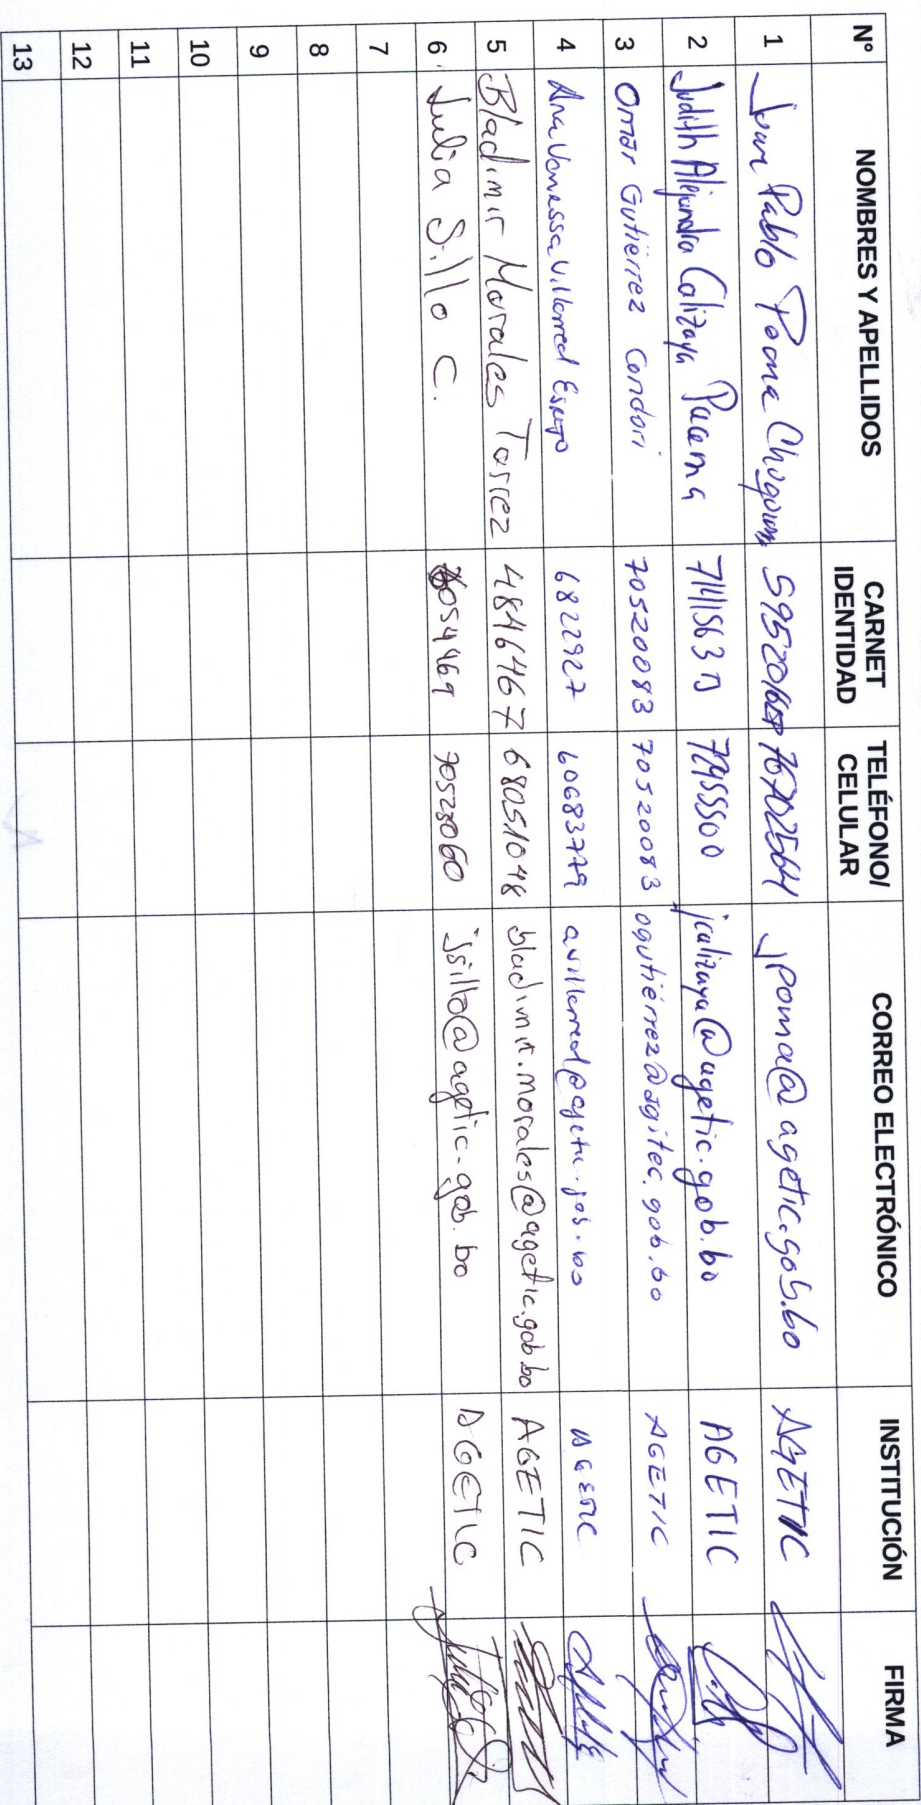 Nº NOMBRES Y APELLIDOS CARNET IDENTIDAD TELÉFONO/ CELULAR CORREO ELECTRÓNICO INSTITUCIÓN FIRMA
1 Juan Pablo Poma 76702564 jpoma@agetic.gob.bo AGETIC
2 Judith Alejandra Calizaya Pacema jcalizaya@agetic.gob.bo AGETIC
3 Omar Gutiérrez Condori 70520083 70520083 ogutiérrez@agitec.gob.bo AGETIC
4 Ana Vanessa Villarreal 6822927 60683779 AGETIC
5 Bladimir Morales Torrez 48416467 68051048 bladimir.morales@agetic.gob.bo AGETIC
6 Julia Sillo C. 70528060 jsillo@agetic.gob.bo AGETIC
7
8
9
10
11
12
13